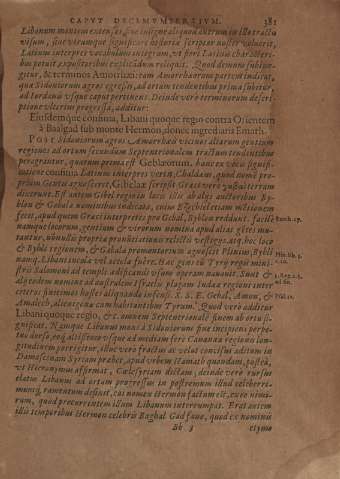 CAPVT DECIMVMTERTIVM. 381
Libanum montem extensas, siue insigne aliquod antrum in illo tractu
visum, siue vtrumque significare historiæ scriptor noster voluerit,
Latinus interpres vocabulum integrum, vt fieri Latinis characteri-
bus potuit expositoribus explicandum reliquit. Quod demum subiun-
gitur, & terminos Amorrhæi, eam Amorrhæorum partem indicat,
quæ Sidoniorum agros egressis, ad ortum tendentibus prima subitur,
ad Iordanis vsque caput pertinens. Deinde vero terminorum descri-
ptione vlterius progressa, additur:
Eiusdemque confinia, Libani quoque regio contra Orientem
à Baalgad sub monte Hermon, donec ingrediaris Emath.
POST Sidoniorum agros Amorrhæis vicinos aliarum gentium
regiones ad ortum secundum Septentrionalem tractum tendentibus
peragrantur, quarum prima est Geblæorum, hanc ex vocis signifi-
catione confinia Latinus interpres vertit, Chaldæus, quod nomē pro-
prium Gentis agnosceret, Giblææ scripsit
dixerunt. Est autem Gibel regionis locus illis ab aliis auctoribus By-
blos & Gobal nominibus indicatus, cuius Ezechiel etiam mentionem
fecit, apud quem Græci interpretes pro Gebal, Byblon reddunt. facilè
namque locorum, gentium & virorum nomina apud alias gētes mu-
tantur, nonnullis propriæ pronuntiationis relictis vestigiis. atq. hoc loco
& Bybli regionem, & Gabala promontorium agnoscit Plinius, Bybli-
namq. Libani incolæ vel accolæ fuêre. Hac gens cū Tyro regis mini-
stris Salomoni ad templi ædificandi vsum operam nauauit. Sunt &
eiusdem nomine ad australem Israelis plagam Iudææ regioni inter
ceteros finitimos hostes aliquando infensi. S. S. E. Gebal, Amon, &
Amalech, alienigenæ cum habitantibus Tyrum. Quod verò additur
Libani quoque regio, &c. omnem Septentrionale sinum ab ortu si-
gnificat. Namque Libanus mons à Sidoniorum sine incipiens perpe-
tuo dorso, eoq. altissimo vsque ad mediam ferè Cananæ regionis lon-
gitudinem porrigitur, illuc vero fractus ac veluti concisus aditum in
Damascenam Syriam præbet, apud vrbem Hamath quondam, postea,
vt Hieronymus affirmat, Cœlesyriam dictam; deinde vero rursus
elatus Libanus ad ortum progressus in postremum illud celeberri-
mumq. iuramentum desinit, cui nomen Hermon factum est, cuius nimi-
rum, quod præcurrentem illum Libanum interrumpat. Erat autem
illis temporibus Hermon celebris Baghal Gad fano, quod ex nominis
Bb 3
etymo
Ezech. 27.
Plin. lib. 5.
c. 20.
3. Reg. c. 5.
ad fin.
Psal. 82.